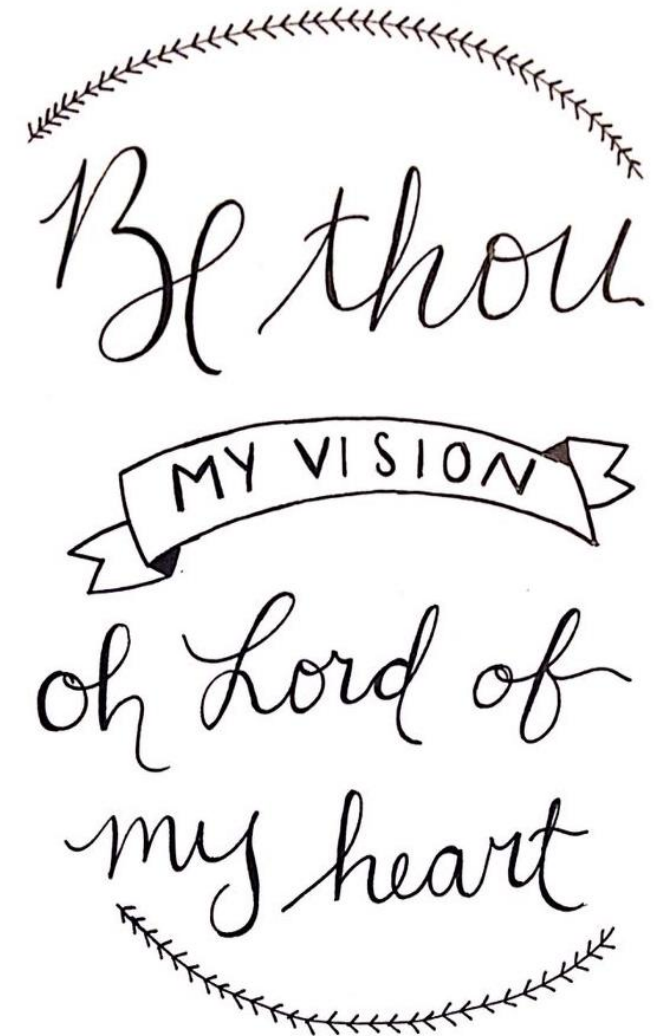 Be thou
MY VISION
oh Lord of
my heart